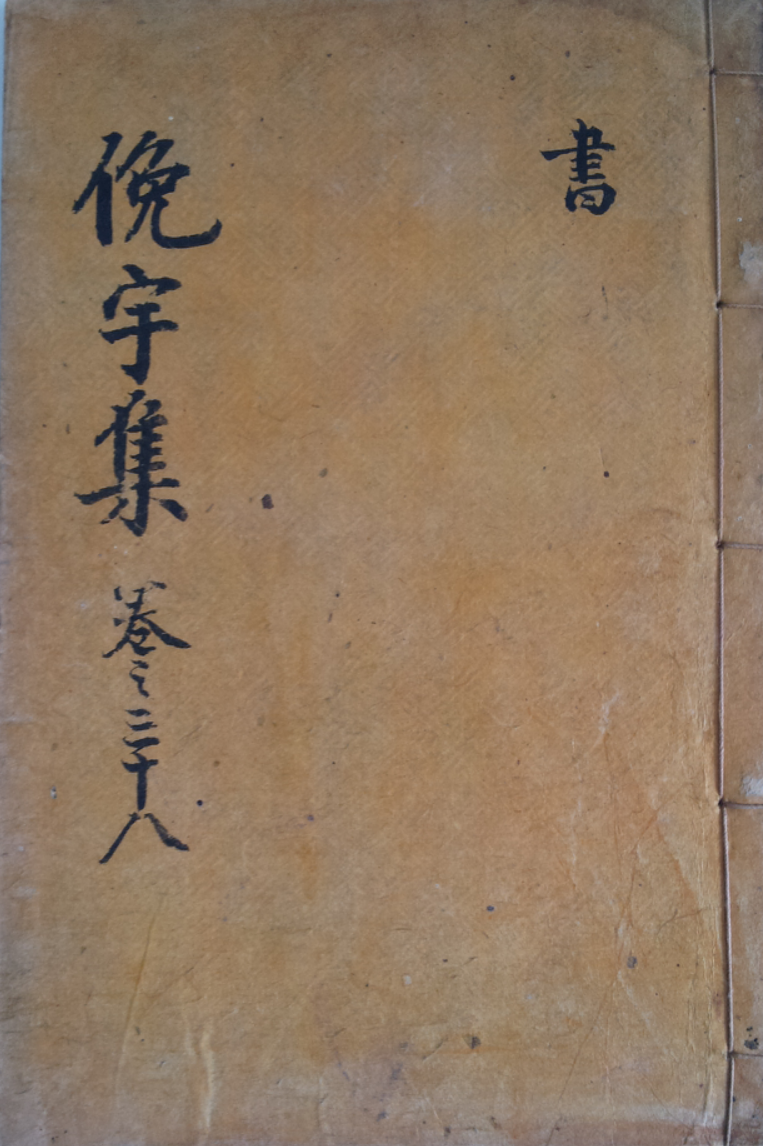 書
俛宇集 卷之三十八